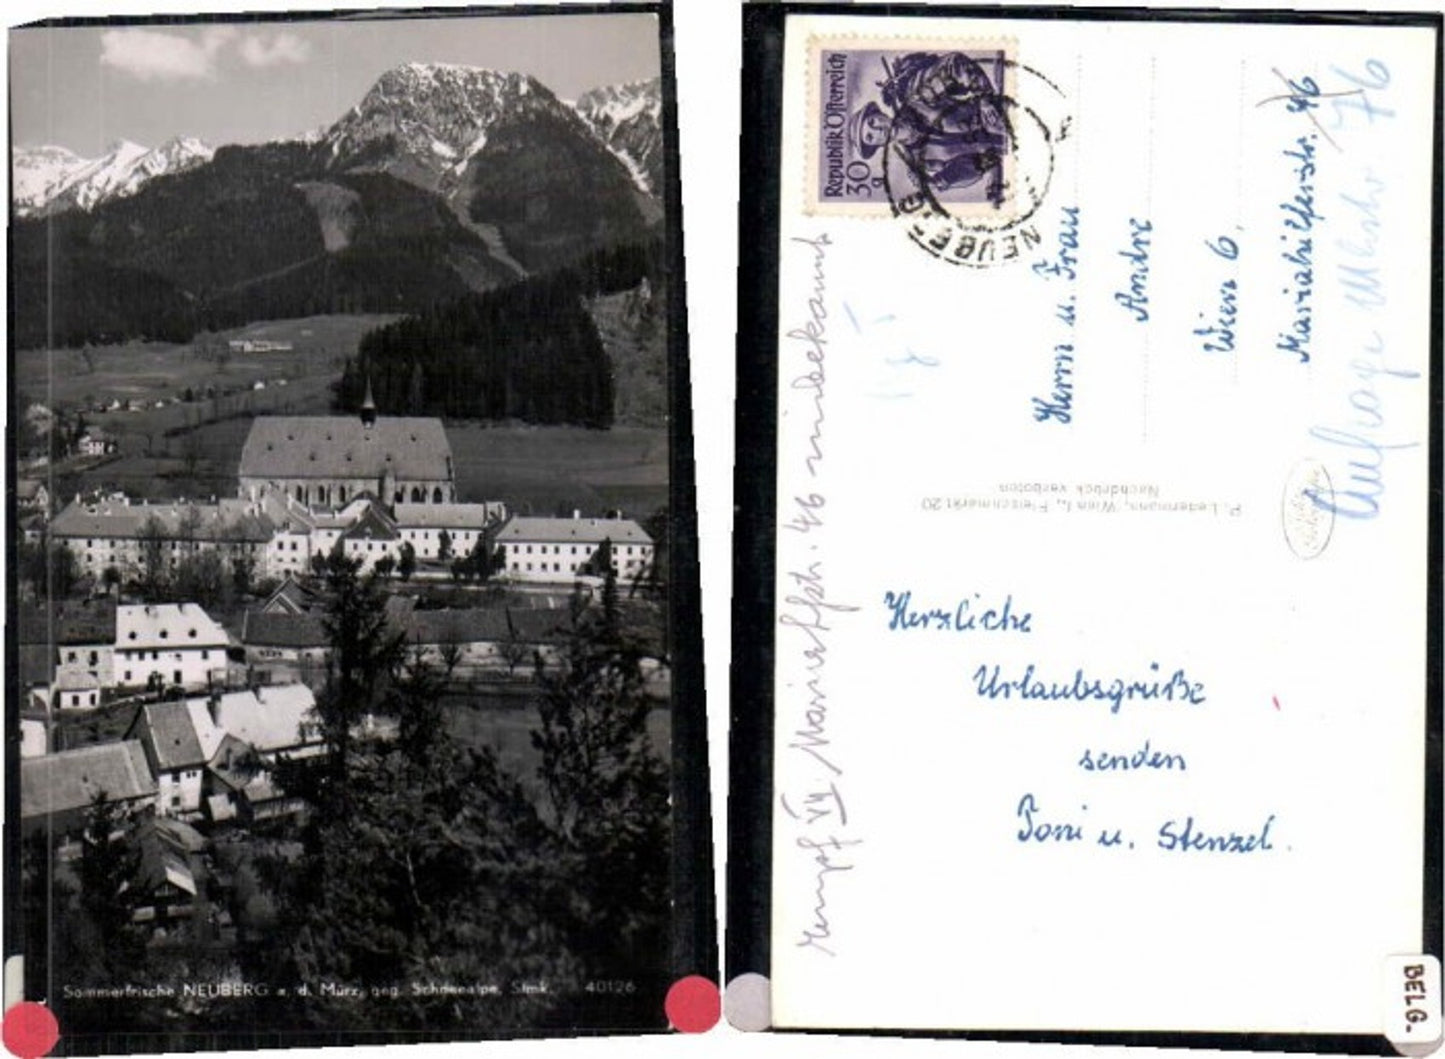 Sommerfrische NEUBERG a. d. Mürz, geg. Schneealpe, Stmk. 40126
Republik Österreich
30 g
NEUBERG
Herrn u. Frau
Andre
Wien 6,
Mariahilferstr. 46
76
P. Ledermann, Wien I., Fleischmarkt 20
Nachdruck verboten
Herzliche
Urlaubsgrüße
senden
Toni u. Stenzel.
46 unbekannt
BELG.